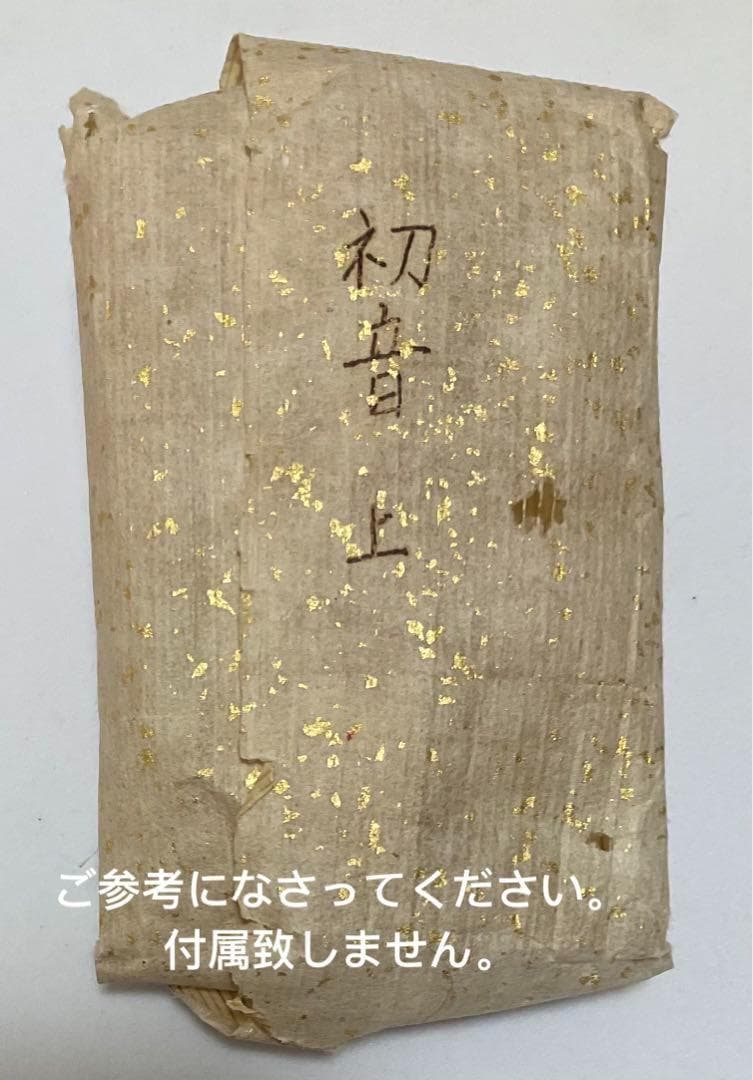 初音 上
ご参考になさってください。
付属致しません。